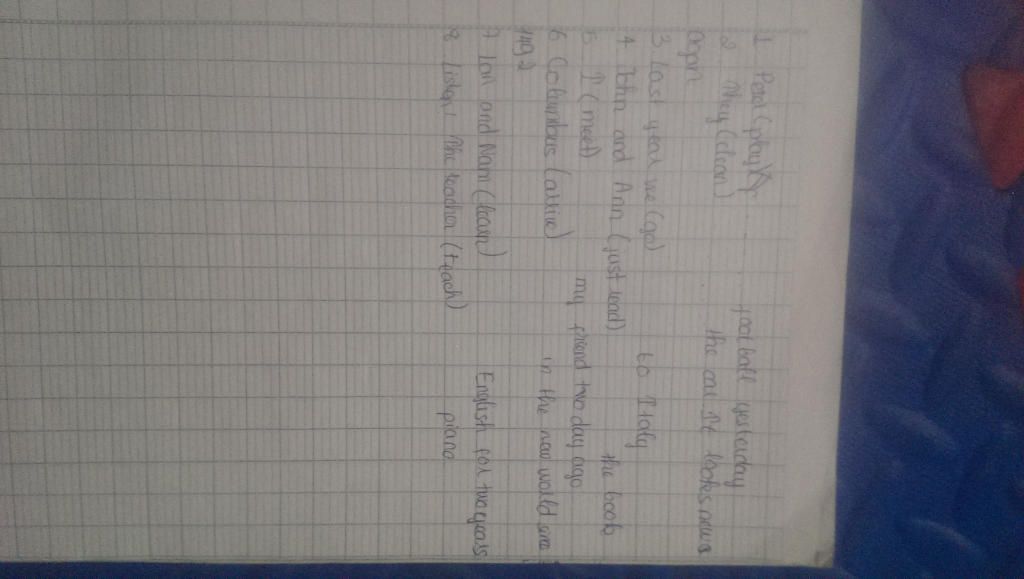 1 Paul (play) ........ football yesterday
2 They (clean) ........ the car It looks new
again
3 Last year we (go) to Italy
4 John and Ann (just read) the book
5 I (meet) my friend two day ago
6 Columbus (arrive) in the new world
1492
7 Lan and Nam (learn) English for two years
8 Listen! The teacher (teach) piano